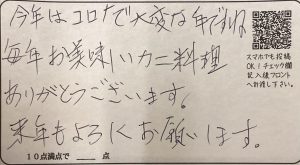 今年はコロナで大変な年ですね
毎年お美味しいカニ料理
ありがとうございます。
来年もよろしくお願いします。
スマホでも投稿
OK！チェック欄
記入後フロント
へお渡し下さい。
10点満点で ___ 点